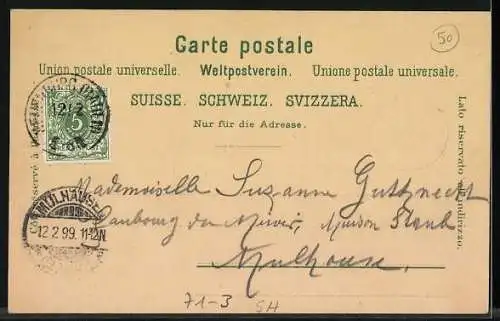 50
Carte postale
Union postale universelle. Weltpostverein. Unione postale universale.
SUISSE. SCHWEIZ. SVIZZERA.
Nur für die Adresse.
Lato riservato all'indirizzo.
5
MÜLHAUSEN
12.2.99. 11-12N.
Mademoiselle Suzanne Gutknecht
Faubourg du Miroir, Maison Staub
Mulhouse.
71-3
SH